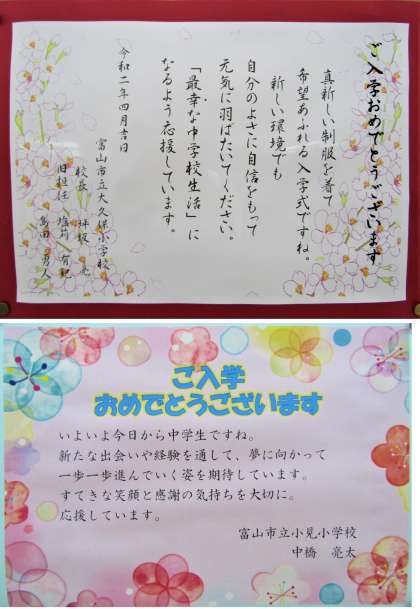 ご入学おめでとうございます
真新しい制服を着て
希望あふれる入学式ですね。
新しい環境でも
自分のよさに自信をもって
元気に羽ばたいてください。
「最幸な中学校生活」に
なるよう応援しています。
令和二年四月吉日
富山市立大久保小学校
校長
旧担任
島田 勇人
ご入学
おめでとうございます
いよいよ今日から中学生ですね。
新たな出会いや経験を通して、夢に向かって
一歩一歩進んでいく姿を期待しています。
すてきな笑顔と感謝の気持ちを大切に。
応援しています。
富山市立小見小学校
中橋 亮太